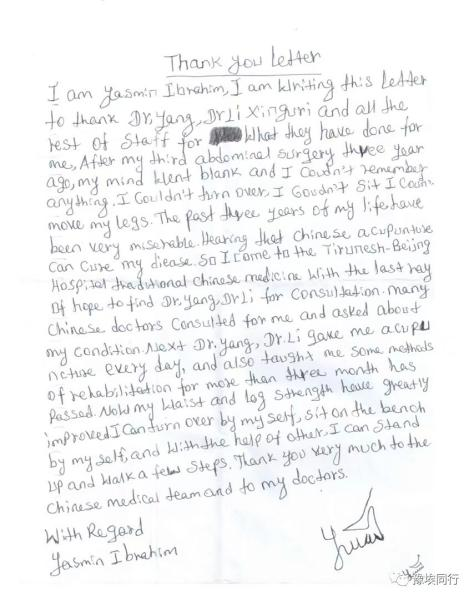 Thank you Letter
I am Yasmin Ibrahim, I am Writing this Letter
to thank Dr.Yang, Dr Li Xinguri and all the
rest of Staff for What they have done for
me, After my third abdominal surgery three year
ago, my mind Went blank and I Coudn't remember
anything. I Couldn't turn over. I Goudn't Sit I Coudn't
move my legs. The past three years of my life, have
been very miserable. Hearing that Chinese acupunture
Can Cure my diease. So I Come to the Tirunesh-Beijing
Hospital traditional Chinese medicine With the last ray
Of hope to find Dr.Yang, Dr Li for Consultation. many
Chinese doctors Consulted for me and asked about
my Condition. Next Dr. Yang, Dr. Li gave me acupu
ncture every day, and also taught me some methods
of rehabilitation for more than three month has
Passed. Now my Waist and Log Strength have greatly
improved I Can turn over by my self, sit on the bench
by my self, and With the help of other, I can Stand
UP and Walk a few Steps. Thank you very much to the
Chinese medical team and to my doctors.
With Regard
Yasmin Ibrahim
豫埃同行